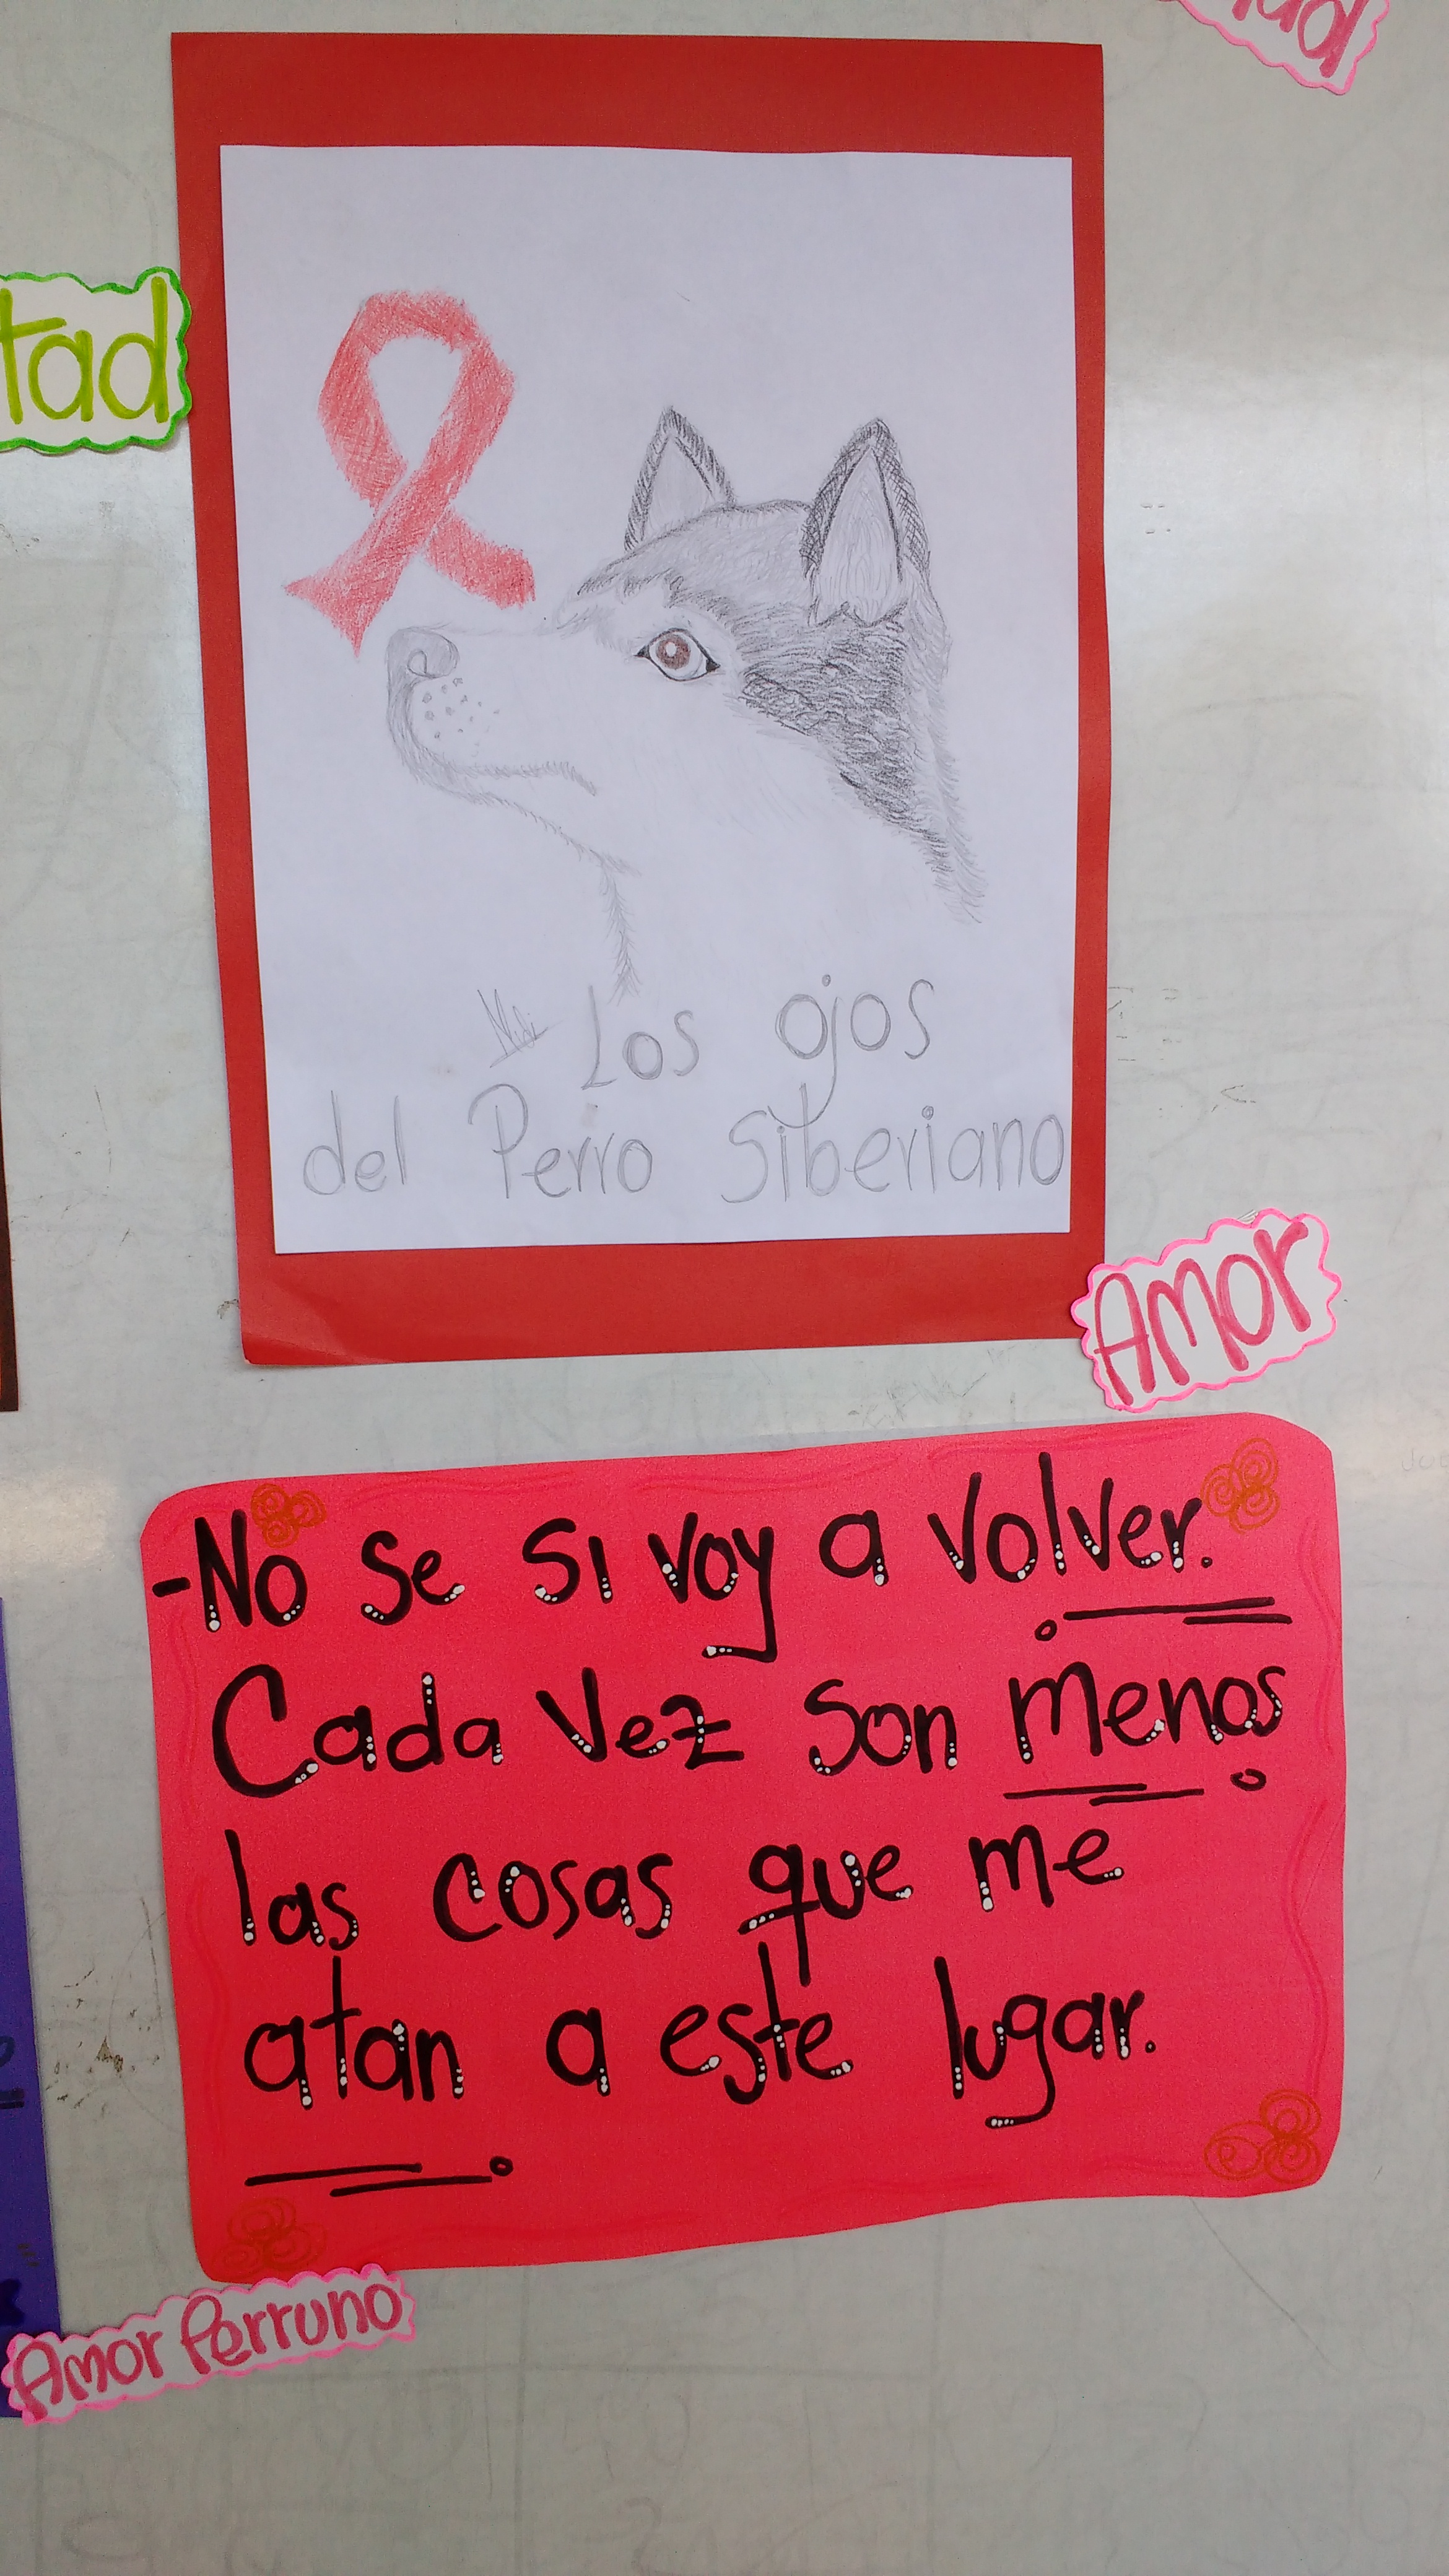 tad
Los ojos
del Perro Siberiano
Amor
-No se si voy a volver.
Cada vez son menos
las cosas que me
atan a este lugar.
Amor Perruno